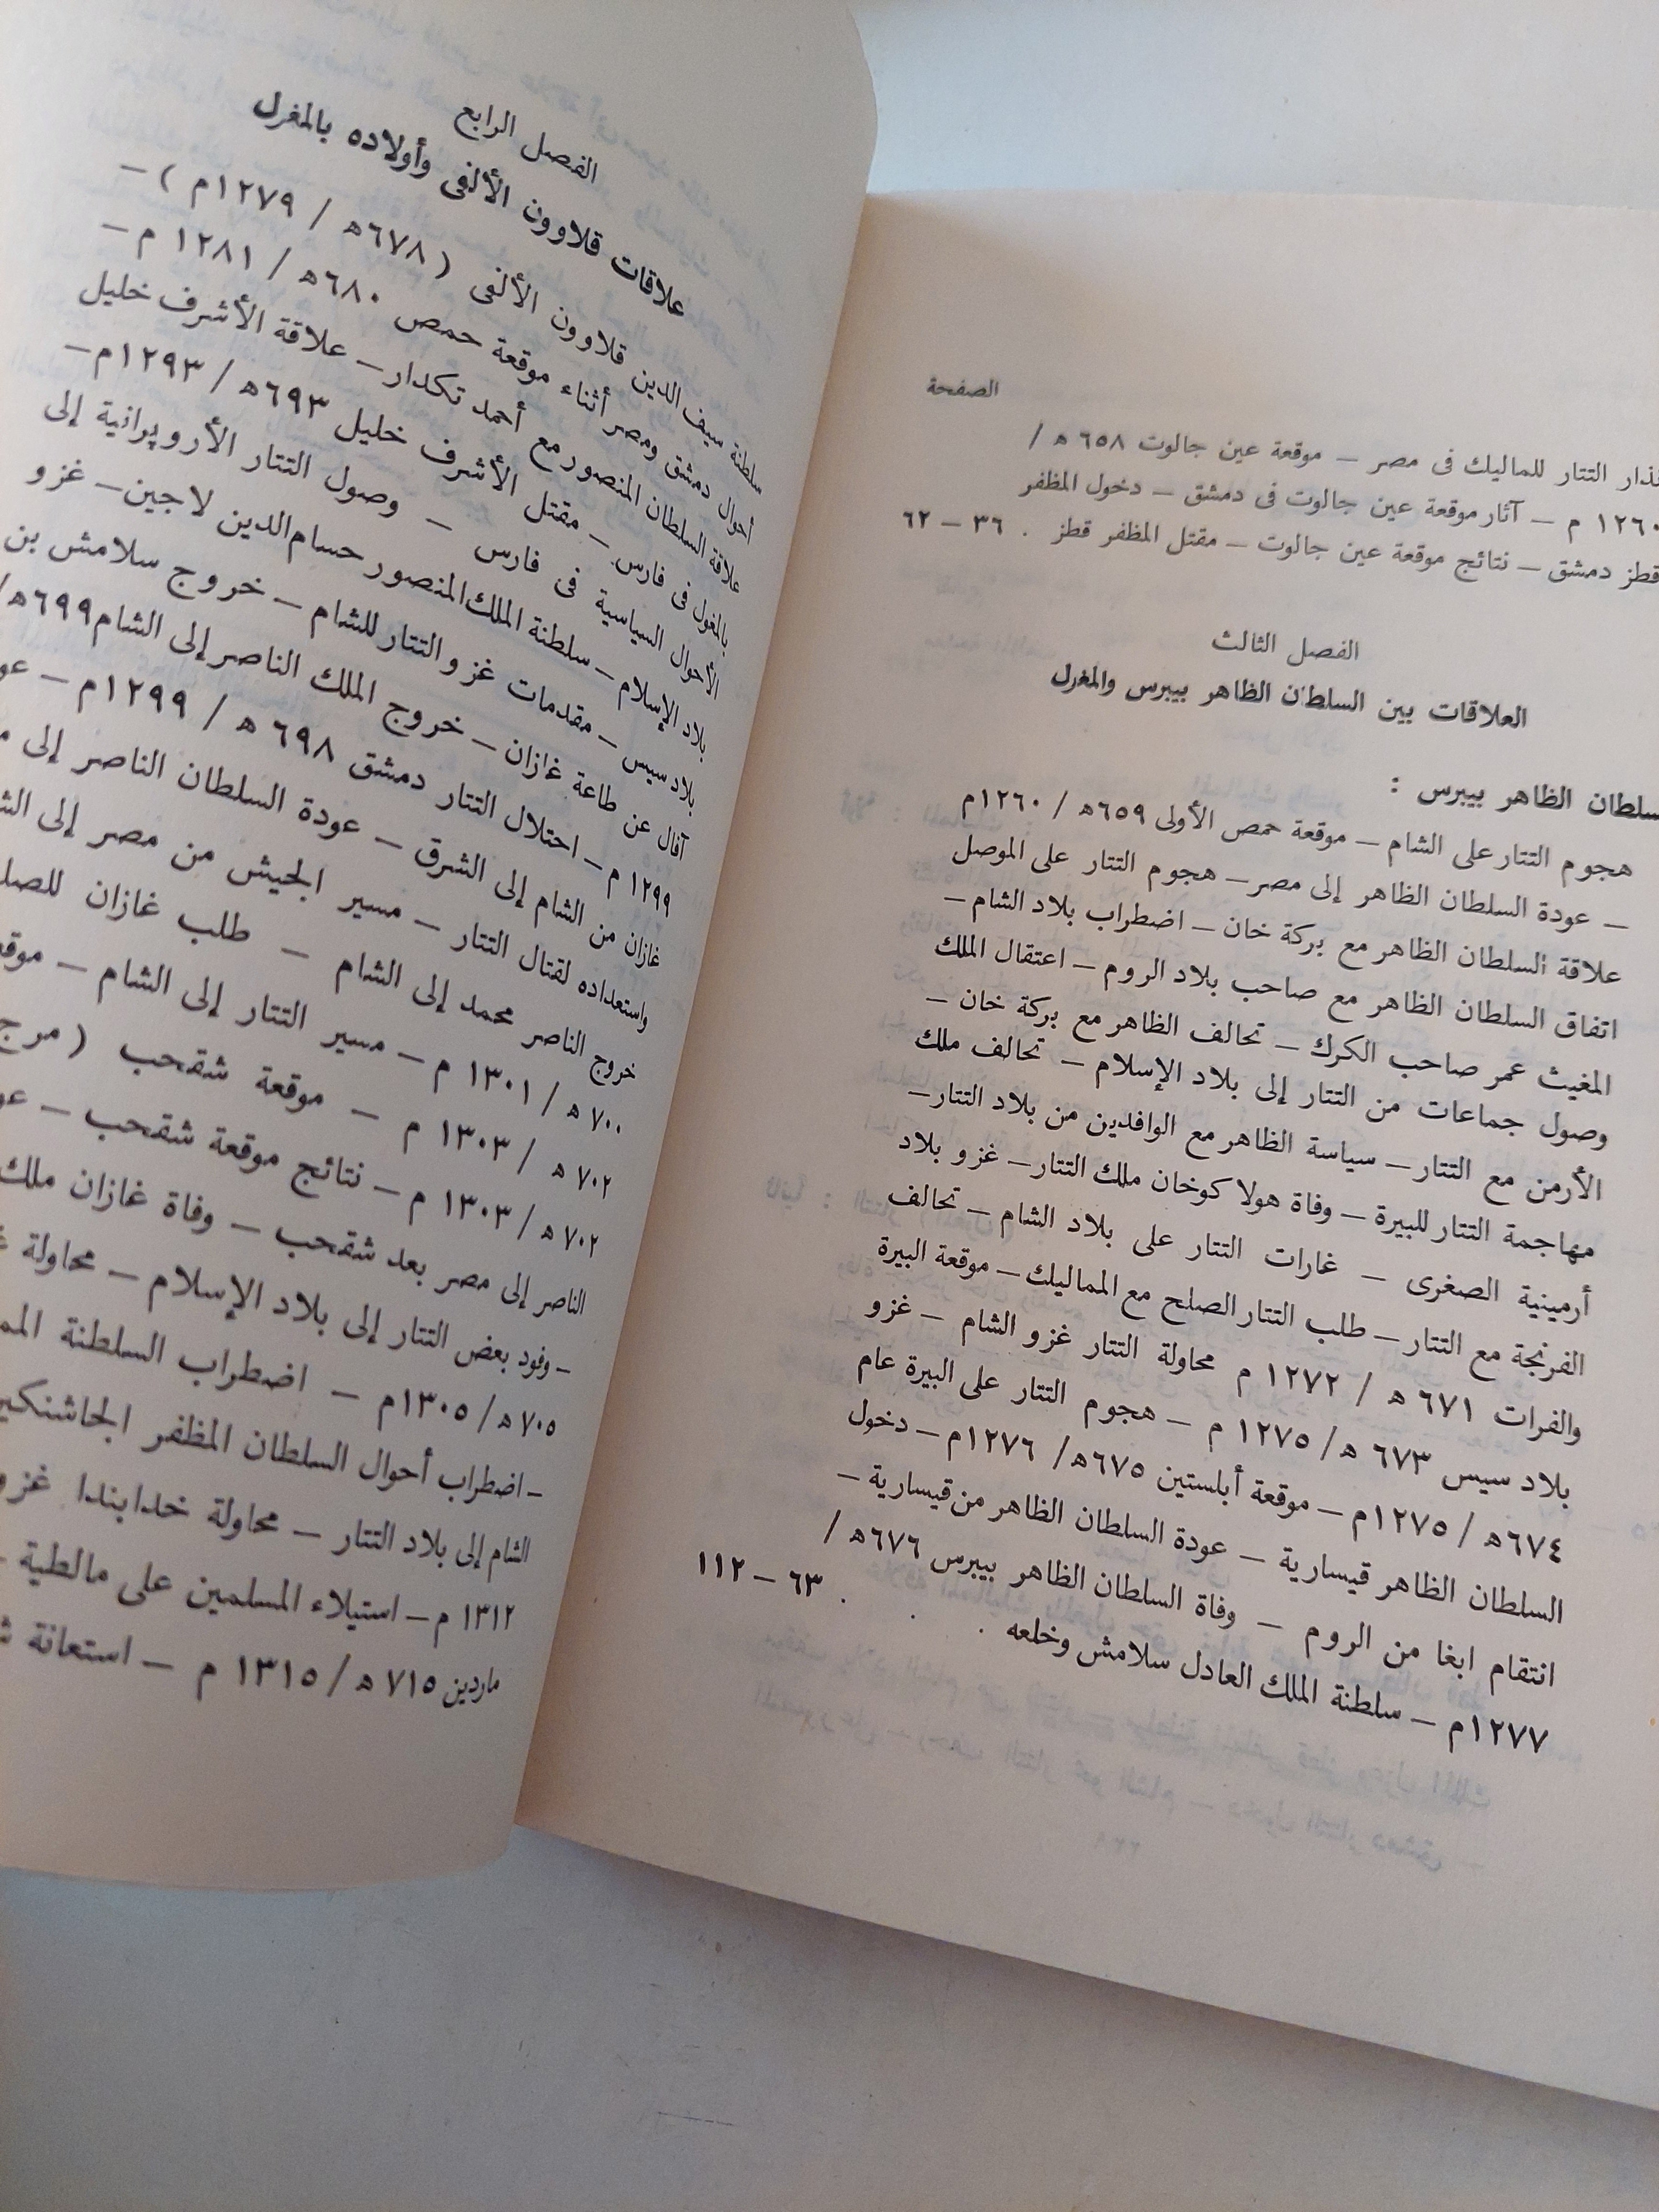 الصفحة
التتار للماليك فى مصر — موقعة عين جالوت ٦٥٨ ه /
١٢٦٠ م — آثار موقعة عين جالوت فى دمشق — دخول المظفر
قطز دمشق — نتائج موقعة عين جالوت — مقتل المظفر قطز . ٣٦ — ٦٢
الفصل الثالث
العلاقات بين السلطان الظاهر بيبرس والمغول
الظاهر بيبرس :
هجوم التتار على الشام — موقعة حمص الأولى ٦٥٩ه / ١٢٦٠م
— عودة السلطان الظاهر إلى مصر — هجوم التتار على الموصل
علاقة السلطان الظاهر مع بركة خان — اضطراب بلاد الشام —
اتفاق السلطان الظاهر مع صاحب بلاد الروم — اعتقال الملك
المغيث عمر صاحب الكرك — تحالف الظاهر مع بركة خان —
وصول جماعات من التتار إلى بلاد الإسلام — تحالف ملك
الأرمن مع التتار — سياسة الظاهر مع الوافدين من بلاد التتار —
مهاجمة التتار للبيرة — وفاة هولاكوخان ملك التتار — غزو بلاد
أرمينية الصغرى — غارات التتار على بلاد الشام — تحالف
الفرنجة مع التتار — طلب التتار الصلح مع المماليك — موقعة البيرة
والفرات ٦٧١ ه / ١٢٧٢ م محاولة التتار غزو الشام — غزو
بلاد سيس ٦٧٣ ه / ١٢٧٥ م — هجوم التتار على البيرة عام
٦٧٤ه / ١٢٧٥م — موقعة أبلستين ٦٧٥ه / ١٢٧٦م — دخول
السلطان الظاهر قيسارية — عودة السلطان الظاهر من قيسارية —
انتقام ابغا من الروم — وفاة السلطان الظاهر بيبرس ٦٧٦ه /
١٢٧٧م — سلطنة الملك العادل سلامش وخلعه . . . ٦٣ — ١١٢
الفصل الرابع
علاقات قلاوون الألفى وأولاده بالمغول
سلطنة سيف الدين قلاوون الألفى ( ٦٧٨ه / ١٢٧٩م ) —
أحوال دمشق ومصر أثناء موقعة حمص ٦٨٠ه / ١٢٨١ م —
علاقة السلطان المنصور مع أحمد تكدار — علاقة الأشرف خليل
بالمغول فى فارس — مقتل الأشرف خليل ٦٩٣ه / ١٢٩٣م —
الأحوال السياسية فى فارس — وصول التتار الأرويرانية إلى
بلاد الإسلام — سلطنة الملك المنصور حسام الدين لاجين — غزو
بلاد سيس — مقدمات غزو التتار للشام — خروج سلامش بن
آفال عن طاعة غازان — خروج الملك الناصر إلى الشام ٦٩٩ه /
١٢٩٩ م — احتلال التتار دمشق ٦٩٨ ه / ١٢٩٩م —
غازان من الشام إلى الشرق — عودة السلطان الناصر إلى
واستعداده لقتال التتار — مسير الجيش من مصر إلى
خروج الناصر محمد إلى الشام — طلب غازان
٧٠٠ ه / ١٣٠١ م — مسير التتار إلى الشام —
٧٠٢ ه / ١٣٠٣ م — موقعة شقحب ( مرج
٧٠٢ ه / ١٣٠٣ م — نتائج موقعة شقحب —
الناصر إلى مصر بعد شقحب — وفاة غازان ملك
— وفود بعض التتار إلى بلاد الإسلام — محاولة
٧٠٥ ه / ١٣٠٥م — اضطراب السلطنة
— اضطراب أحوال السلطان المظفر الجاشنكير
الشام إلى بلاد التتار — محاولة خدابندا غزو
١٣١٢ م — استيلاء المسلمين على مالطية
ماردين ٧١٥ ه / ١٣١٥ م — استعانة